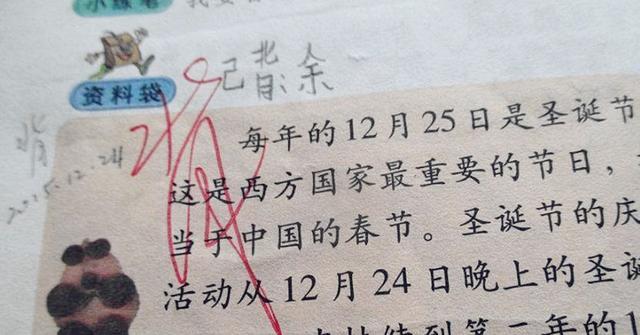 小练笔
资料袋
已背:余
背
2015.12.24
每年的12月25日是圣诞节
这是西方国家最重要的节日，
当于中国的春节。圣诞节的庆
活动从12月24日晚上的圣诞
持续到第二年的1